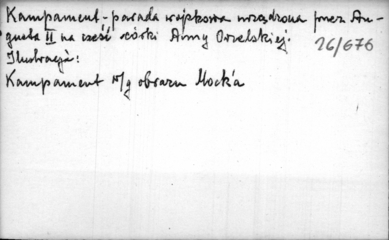 Kampament - parada wojskowa urządzona przez Au-
gusta II na cześć córki Anny Orzelskiej.
26/676
Ilustracja:
Kampament w/g obrazu Mock'a